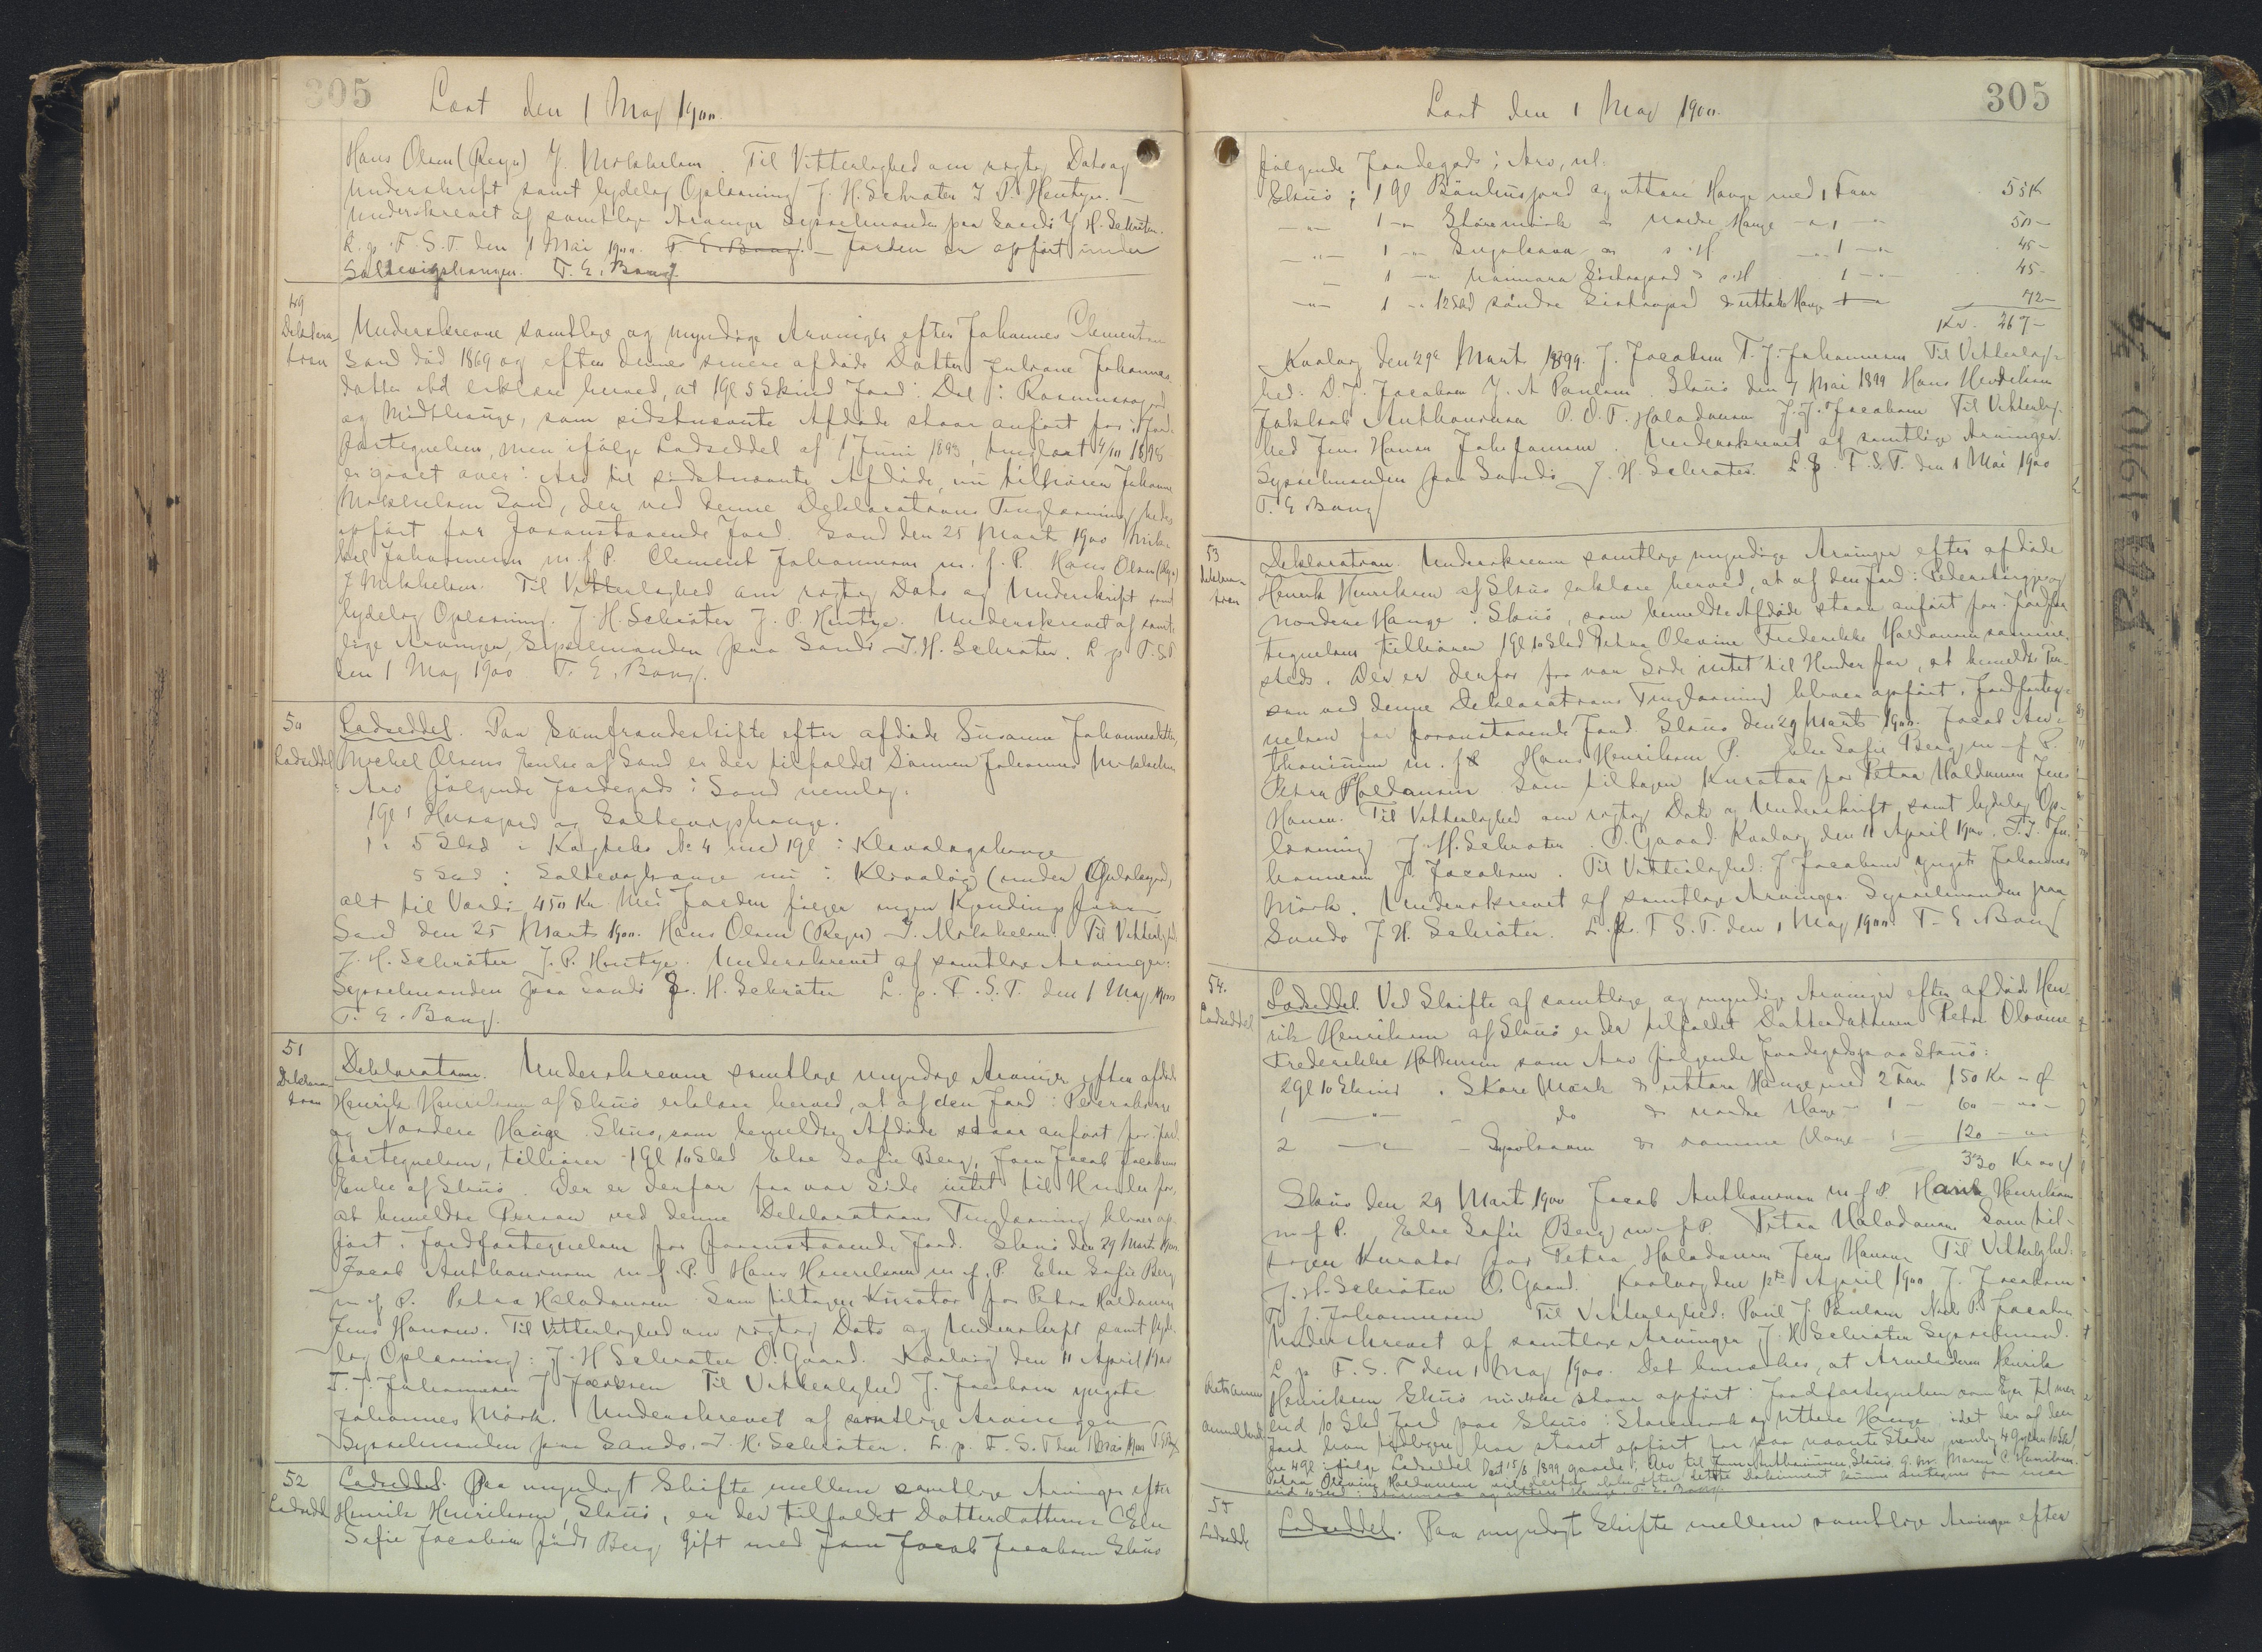 305
Læst den 1 Maj 1900.
Hans Olsen (Reyn) J. Mikkelsen. Til Vitterlighed om rigtig Dato og
Underskrift samt lydelig Oplæsning J. H. Schrøter J. P. Hentze.
Underskrevet af samtlige Arvinger Sysselmanden paa Sandø J. H. Schrøter.
L. p. F. S. T. den 1 Mai 1900. T. E. Bang. – Jorden er opført under
Saltevigshaugen. T. E. Bang
49
Deklara-
tion
Underskrevne samtlige og myndige Arvinger efter Johannes Clementsen
Sand død 1869 og efter dennes senere afdøde Datter Juliane Johannes-
datter ibd erklære herved, at 1 Gl 5 Skind Jord i Dal i Rasmussagjord
og Midthauge, som sidstnævnte Afdøde staar anført for i Jord-
fortegnelsen, men ifølge Lodseddel af 1 Juni 1893, tinglæst 4/10 1893
er gaaet over i Arv til sidstnævnte Afdøde, nu tilhører Johanne
Mikkelsen Sand, der ved denne Deklarations Tinglæsning bedes
opført for foranstaaende Jord. Sand den 25 Marts 1900 Mik-
kel Johannesen m. f. P. Clement Johannesen m. f. P. Hans Olsen (Reyn)
J Mikkelsen. Til Vitterlighed om rigtig Dato og Underskrift samt
lydelig Oplæsning. J. H. Schrøter J. P. Hentze. Underskrevet af samt-
lige Arvinger, Sysselmanden paa Sandø J. H. Schrøter. L p F. S. T
den 1 Maj 1900 T. E. Bang.
50
Lodseddel
Lodseddel. Paa Samfrændeskifte efter afdøde Susanne Johannesdatter,
Mickel Olsens Enke af Sand er der tilfaldet Sønnen Johannes Mikkelsen
i Arv følgende Jordegods i Sand nemlig:
1 Gl i Husagjord og Saltevigshauge.
1 " 5 Skd i No 4 med 1 Gl i
5 Skd i Saltevigshauge nu i (under
alt til Værdi 450 Kr. Med Jorden følger ingen
Sand den 25 Marts 1900. Hans Olsen (Reyn) J. Mikkelsen. Til Vitterlighed:
J. H. Schrøter J. P. Hentze. Underskrevet af samtlige Arvinger:
Sysselmanden paa Sandø J. H. Schrøter L. p. F. S. T. den 1 Maj 1900
T. E. Bang.
51
Deklara-
tion
Deklaration. Underskrevne samtlige myndige Arvinger efter afdøde
Henrik Henriksen af Skuø erklære herved, at af den Jord i
og Nordere Hauge Skuø, som bemeldte Afdøde staar anført for i Jord-
fortegnelsen, tilhører 1 Gl 10 Skd Else Sofie Berg, Joen Jacob Jacobsens
Enke af Skuø. Der er derfor fra vor Side intet til Hinder for,
at bemeldte Person ved denne Deklarations Tinglæsning bliver op-
ført i Jordfortegnelsen for foranstaaende Jord. Skuø den 29 Marts 1900.
Jacob Anthoniussen m. f. P. Hans Henriksen m. f. P. Else Sofie Berg
m f P. Petra Haldansen Som tiltagen Kurator for Petra Haldansen
Jens Hansen. Til Vitterlighed om rigtig Dato og Underskrift samt lyde-
lig Oplæsning: J. H Schrøter O. Gaard. Kvalvig den 11 April 1900
T. J. Johannesen J Jacobsen Til Vitterlighed J. Jacobsen yngste
Johannes Mørk. Underskrevet af samtlige Arvinger
Sysselmanden paa Sandø. J. H. Schrøter. L. p. F. S. T den 1 Mai 1900 T. E. Bang
52
Lodseddl
Lodseddel. Paa myndigt Skifte mellem samtlige Arvinger efter
Henrik Henriksen, Skuø, er der tilfaldet Datterdatteren Else
Sofie Jacobsen født Berg gift med Joen Jacob Jacobsen Skuø
305
Læst den 1 Maj 1900.
følgende Jordegods i Arv, nl.
Skuø i 1 Gl Bønhusjord og uttare Hauge med 1 Faar 55 K
– " – 1 – " Skoremørk & nordre Hauge – " 1 – " 50 –
– " – 1 – " & s. H – " 1 – " 45 –
– 1 – " & s. H 1 – " 45 –
– " – 1 – " 12 Skd søndre & uttare Hauge 1 – 72 –
Kr. 267 –
Kvalvig den 29de Marts 1899. J. Jacobsen T. J. Johannesen Til Vitterlig-
hed. D. J. Jacobsen J. A Poulsen. Skuø den 7 Mai 1899 Hans Hendriksen
Jakob Anthoniusen P. O. F. Haldansen J. J. Jacobsen Til Vitterlig-
hed Jens Hansen . Underskrevet af samtlige Arvinger.
Sysselmanden paa Sandø J. H. Schrøter L. p. F. S. T. den 1 Mai 1900
T. E. Bang
53
Deklara-
tion
Deklaration. Underskrevne samtlige myndige Arvinger efter afdøde
Henrik Henriksen af Skuø erklære herved, at af den Jord i og
nordere Hauge i Skuø, som bemeldte Afdøde staar anført for i Jordfor-
tegnelsen tilhører 1 Gl 10 Skd Petra Olevine Frederikke Haldansen samme-
steds. Der er derfor fra vor Side intet til Hinder for, at bemeldte Per-
son ved denne Deklarations Tinglæsning bliver opført i Jordforteg-
nelsen for foranstaaende Jord. Skuø den 29 Marts 1900. Jacob An-
thoniussen m. f. P. Hans Henriksen P. Else Sofie Berg m f P.
Petra Haldansen Som tiltagen Kurator for Petra Haldansen Jens
Hansen. Til Vitterlighed om rigtig Dato og Underskrift samt lydelig Op-
læsning J. H. Schrøter. O. Gaard. Kvalvig den 11 April 1900. T. J. Jo-
hannesen J. Jacobsen. Til Vitterlighed: J Jacobsen yngste Johannes
Mørk. Underskrevet af samtlige Arvinger Sysselmanden paa
Sandø J. H. Schrøter. L. p. F S. T. den 1 Maj 1900. T. E. Bang
54.
Lodseddel
Lodseddel. Ved Skifte af samtlige og myndige Arvinger efter afdøde Hen-
rik Henriksen af Skuø er der tilfaldet Datterdatteren Petra Olevine
Frederikke Haldansen som Arv følgende Jordegods paa Skuø:
2 Gl 10 Skind i Skore Mørk & uttare Hauge med 2 Faar 150 Kr – Ø
1 – " – do & nordre Hauge – 1 – 60 – " –
2 – " – & samme Hauge – 1 – 120 – "
330 Kr 00 Ø
Skuø den 29 Marts 1900 Jacob Anthoniussen m f P Hans Henriksen
m f P., Else Sofie Berg m f P. Petra Haldansen. Som til-
tagen Kurator for Petra Haldansen Jens Hansen Til Vitterlighed:
J. H. Schrøter O. Gaard. Kvalvig den 12te April 1900 J. Jacobsen
T. J. Johannesen Til Vitterlighed: Poul J. Poulsen Niels P. Jacobsen
Underskrevet af samtlige Arvinger J. H Schrøter Sysselmand.
L p F. S. T den 1 Maj 1900. Det bemærkes, at Arveladeren Henrik
Retsanm
Henriksen Skuø nu ikke staar opført i Jordfortegnelsen som Ejer til mer
end 10 Skd Jord paa Skuø i Skoremørk og uttare Hauge, idet der af den
Jord han tidligere har staaet opført for paa nævnte Steder, nemlig 4 Gylden 10 Skd,
er 4 Gl ifølge Lodseddel læst 15/5 1899 gaaede i Arv til
Petra Olevine Haldansen vil derfor ikke efter dette Dokument kunne antegnes for mer
end 10 Skd i Skoremørk og uttare Hauge T. E. Bang
55
Lodseddl
Lodseddel. Paa myndigt Skifte mellem samtlige Arvinger efter